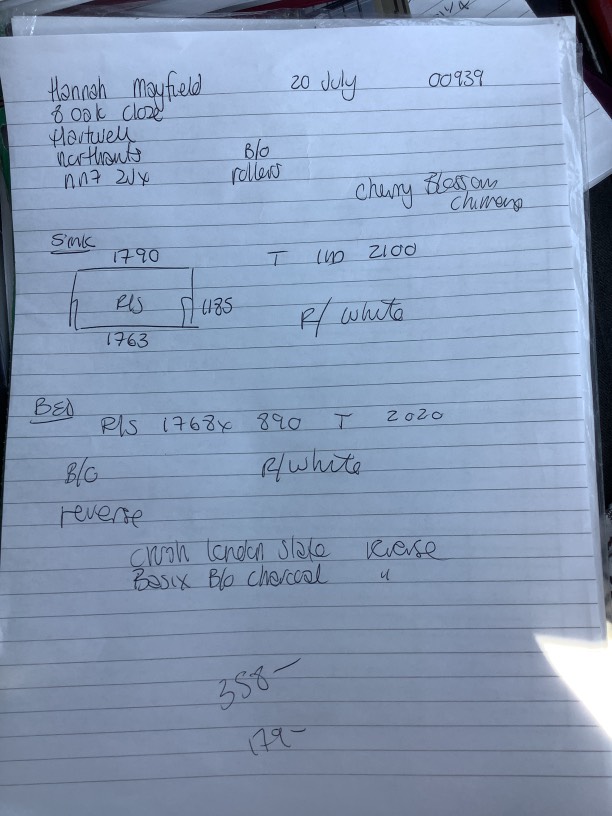 Hannah Mayfield 20 July 00939
8 oak close
Hartwell
northants B/o
nn7 2Jx rollers
Cherry Blossom
Sink
1790 T 2100
R/S 1185 R/ white
1763
BED
R/S 1768x 890 T 2020
B/O R/white
reverse
Crush london slate reverse
Basix B/o charcoal "
358-
179-